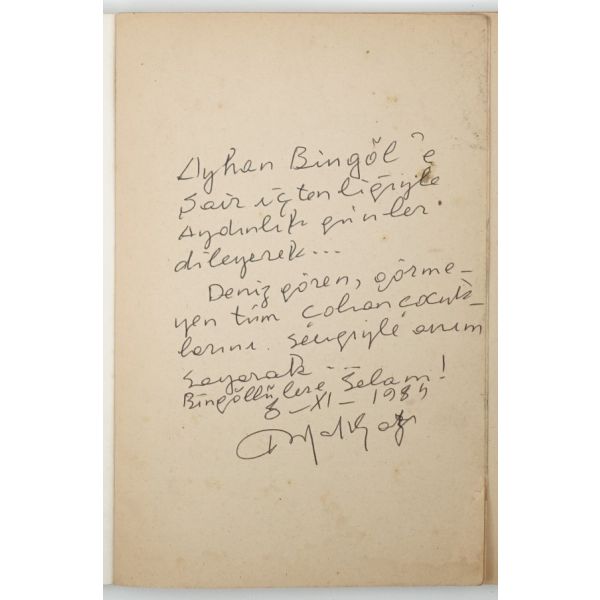 Ayhan Bingöl'e
Şair içtenliğiyle
Aydınlık günler
dileyerek...
Deniz gören, görme-
yen tüm çoban çocuk-
larını sevgiyle
sayarak...
Bingöllülere Selam!
8-XI-1985